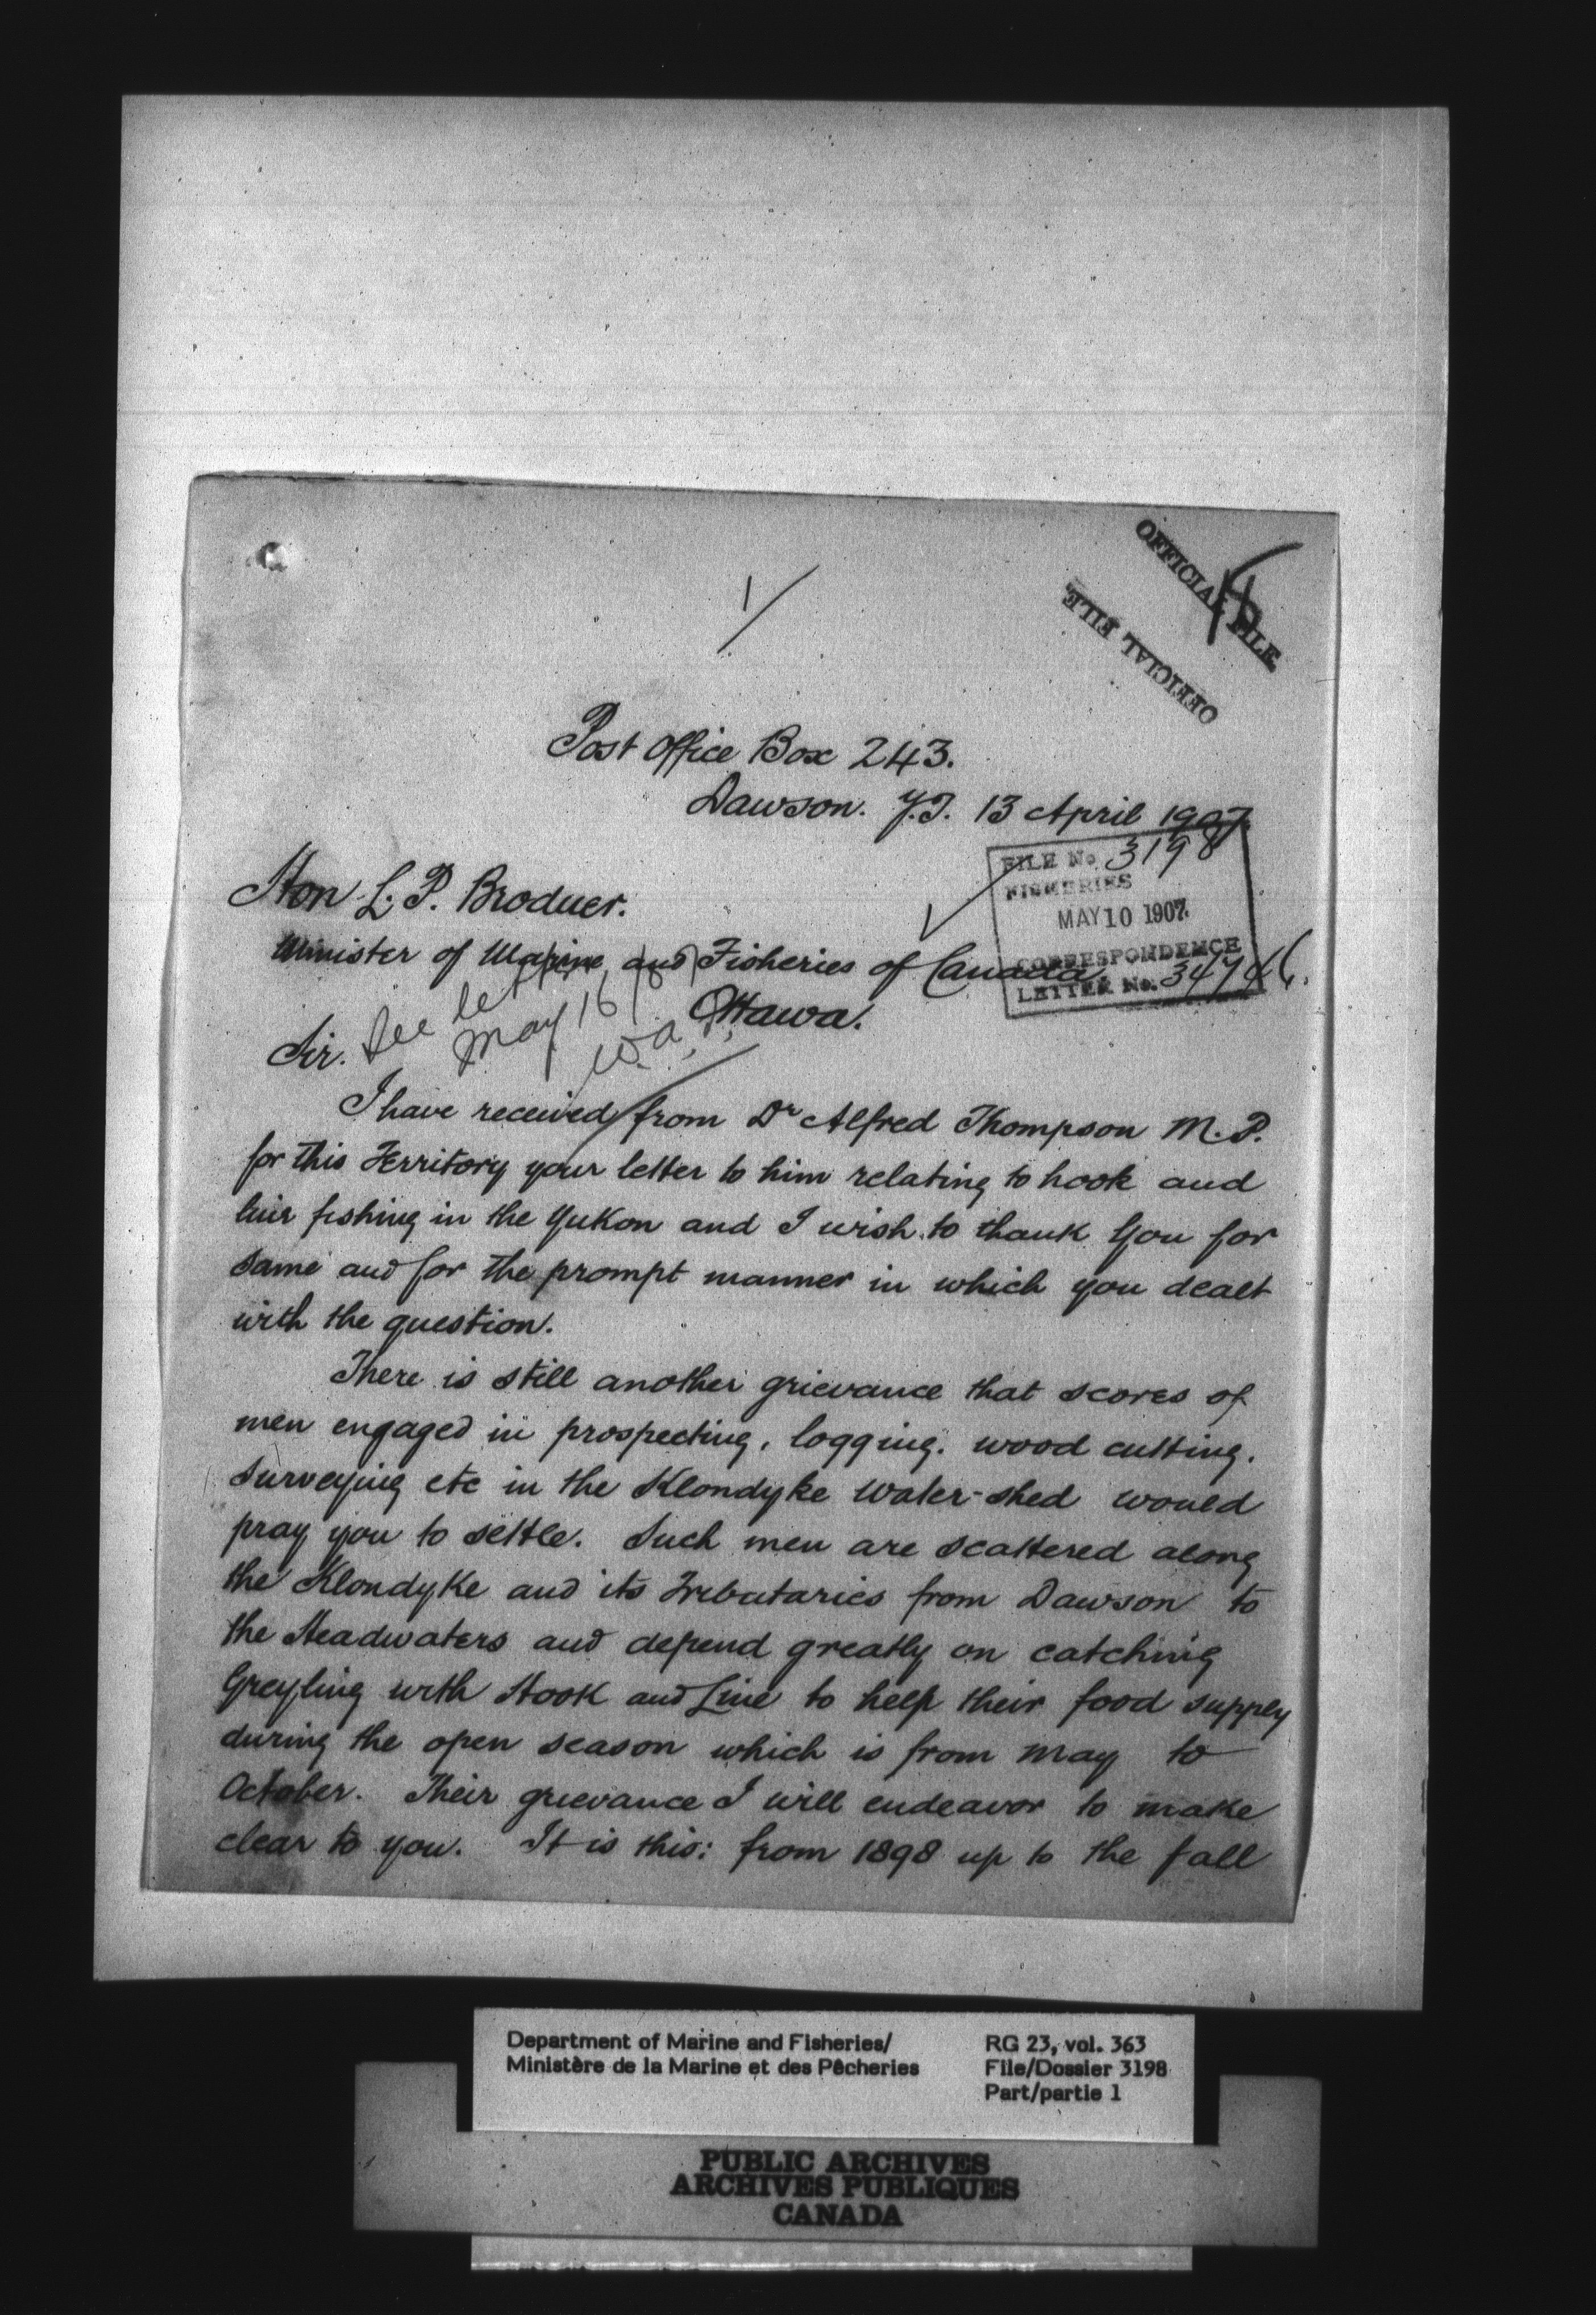 1/
OFFICIAL FILE.
OFFICIAL FILE.
Post Office Box 243.
Dawson. Y.T. 13 April 1907.
FILE No. 3198
FISHERIES
MAY 10 1907
CORRESPONDENCE
LETTER No.
Hon L. P. Broduer.
Minister of Marine and Fisheries of Canada
Ottawa.
See let
May 16/07
Sir.
I have received from Dr Alfred Thompson M.P.
for this Territory your letter to him relating to hook and
line fishing in the Yukon and I wish to thank you for
same and for the prompt manner in which you dealt
with the question.
There is still another grievance that scores of
men engaged in prospecting, logging. wood cutting.
surveying etc in the Klondyke water-shed would
pray you to settle. Such men are scattered along
the Klondyke and its Tributaries from Dawson to
the Headwaters and depend greatly on catching
Greyling with Hook and Line to help their food supply
during the open season which is from May to
October. Their grievance I will endeavor to make
clear to you. It is this: from 1898 up to the fall
Department of Marine and Fisheries/
Ministère de la Marine et des Pêcheries
RG 23, vol. 363
File/Dossier 3198
Part/partie 1
PUBLIC ARCHIVES
ARCHIVES PUBLIQUES
CANADA